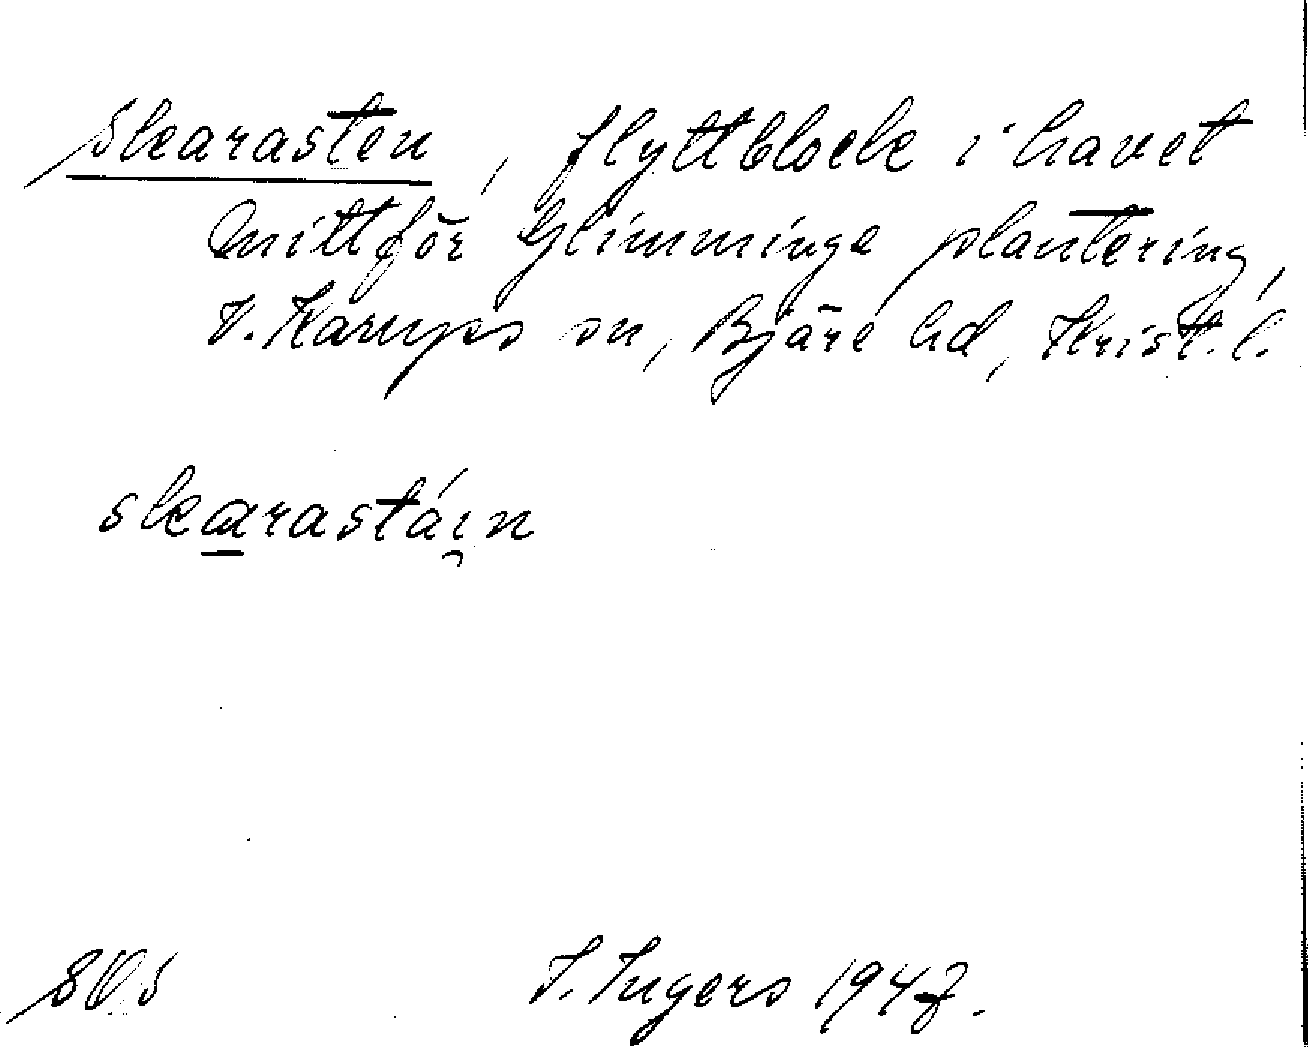 Skarasten, flyttblock i havet
mittför Glimminge plantering,
V. Karups sn, Bjäre hd, Krist. l.
skarastáın
SOS I. Ingers 1947.